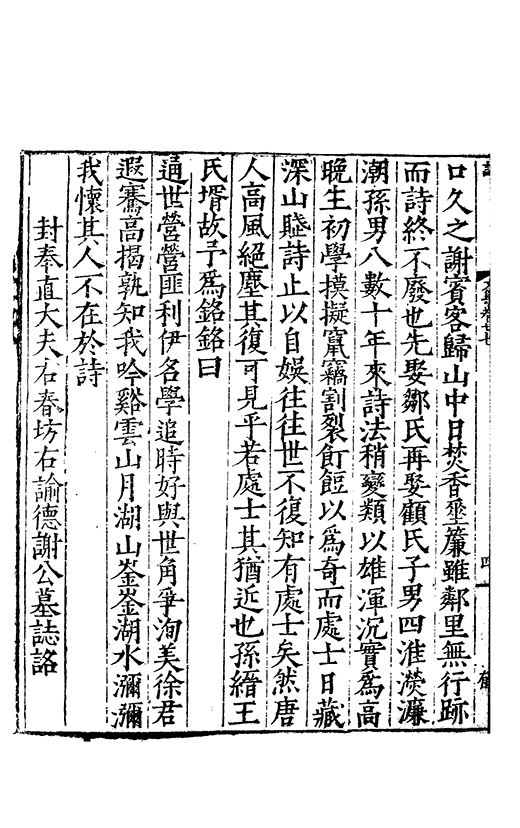 口久之謝賓客歸山中日焚香垂簾雖鄰里無行跡
而詩終不廢也先娶鄒氏再娶顧氏子男四淮濙濂
潮孫男八數十年來詩法稍變類以雄渾沉實為高
晚生初學摸擬竄竊割裂飣餖以為奇而處士日藏
深山賤詩止以自娛往往世不復知有處士矣然唐
人高風絕塵其復可見乎若處士其猶近也孫縉王
氏壻故予為銘銘曰
逼世營營匪利伊名學追時好與世角爭洵美徐君
遐騫高揭孰知我吟谿雲山月湖山崟崟湖水瀰瀰
我懷其人不在於詩
封奉直大夫右春坊右諭德謝公墓誌銘